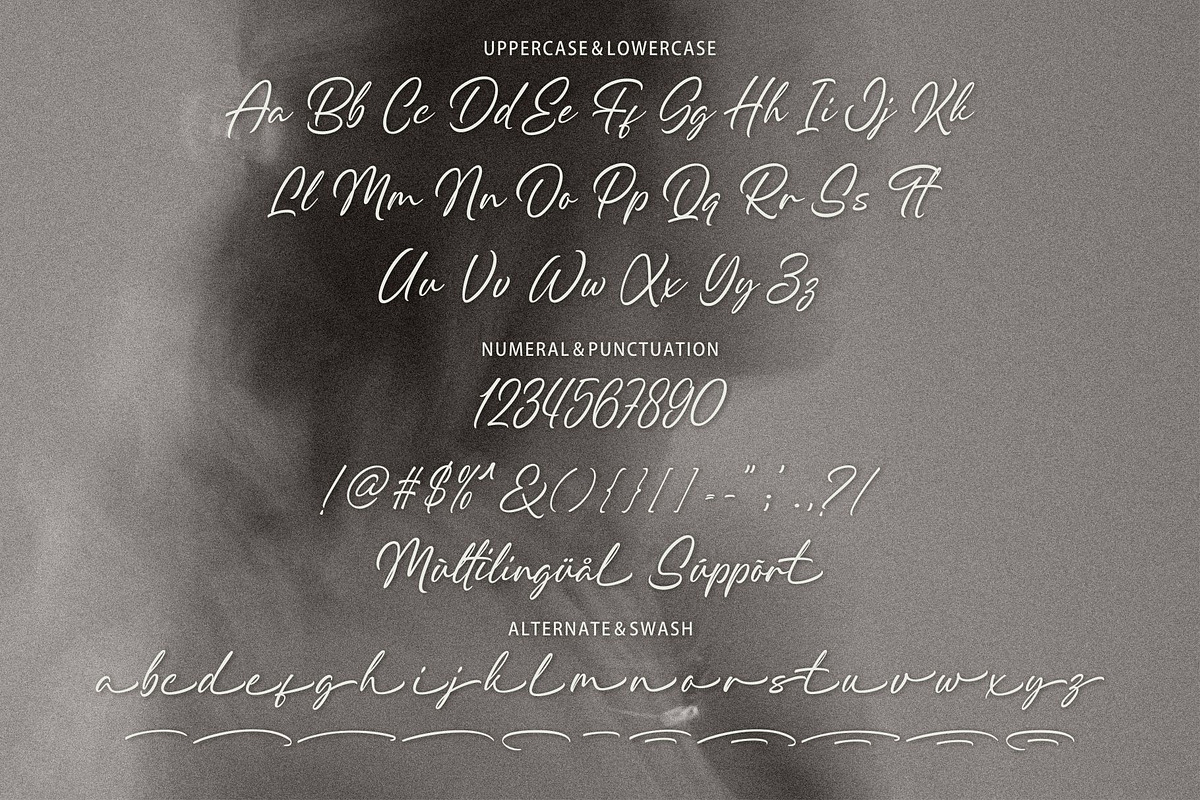 UPPERCASE & LOWERCASE
Aa Bb Cc Dd Ee Ff Gg Hh Ii Jj Kk
Ll Mm Nn Oo Pp Qq Rr Ss Tt
Uu Vv Ww Xx Yy Zz
NUMERAL & PUNCTUATION
1234567890
!@#$%^&(){}[]=-"';.,?/
Mùltilingüål Súppõrt
ALTERNATE & SWASH
abcdefghijklmnopqrstuvwxyz